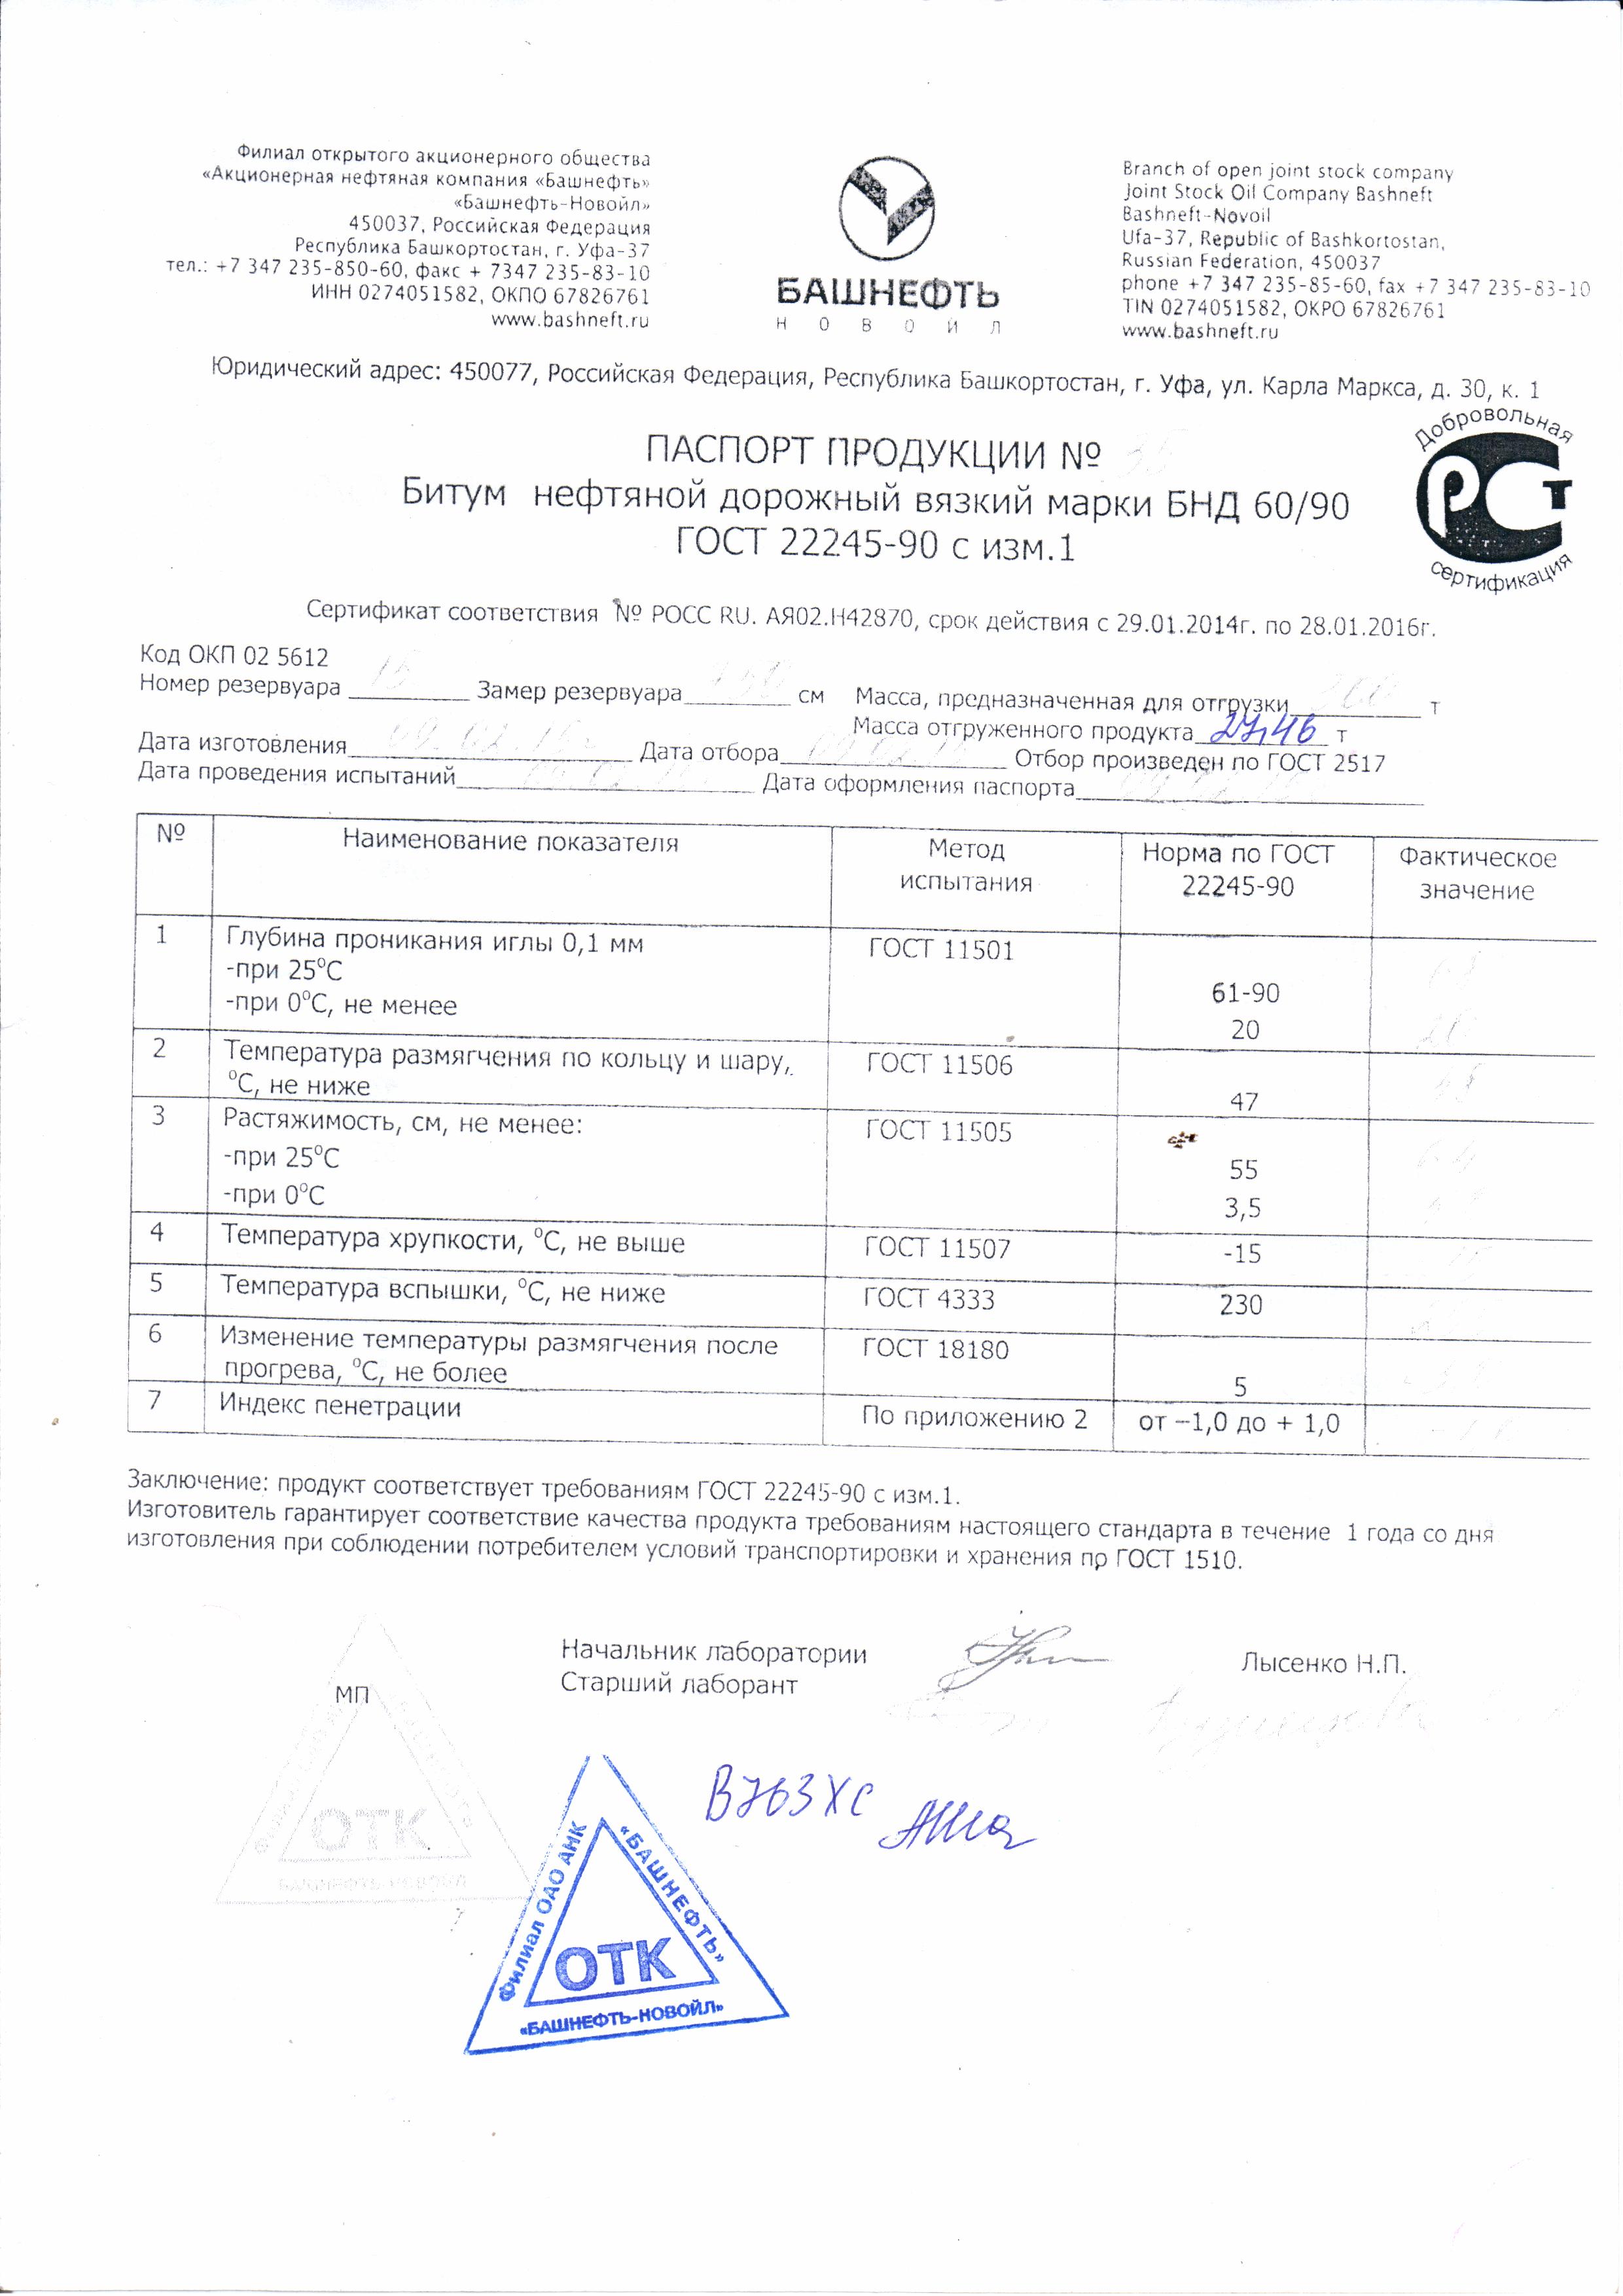 Филиал открытого акционерного общества
«Акционерная нефтяная компания «Башнефть»
«Башнефть-Новойл»
450037, Российская Федерация
Республика Башкортостан, г. Уфа-37
тел.: +7 347 235-850-60, факс + 7347 235-83-10
ИНН 0274051582, ОКПО 67826761
www.bashneft.ru
БАШНЕФТЬ
НОВОЙЛ
Branch of open joint stock company
Joint Stock Oil Company Bashneft
Bashneft-Novoil
Ufa-37, Republic of Bashkortostan,
Russian Federation, 450037
phone +7 347 235-85-60, fax +7 347 235-83-10
TIN 0274051582, OKPO 67826761
www.bashneft.ru
Юридический адрес: 450077, Российская Федерация, Республика Башкортостан, г. Уфа, ул. Карла Маркса, д. 30, к. 1
Добровольная
РСТ
сертификация
ПАСПОРТ ПРОДУКЦИИ № 35
Битум нефтяной дорожный вязкий марки БНД 60/90
ГОСТ 22245-90 с изм.1
Сертификат соответствия № РОСС RU. АЯ02.Н42870, срок действия с 29.01.2014г. по 28.01.2016г.
Код ОКП 02 5612
Номер резервуара 15 Замер резервуара см Масса, предназначенная для отгрузки т
Масса отгруженного продукта 27,46 т
Дата изготовления Дата отбора Отбор произведен по ГОСТ 2517
Дата проведения испытаний Дата оформления паспорта
№ Наименование показателя Метод испытания Норма по ГОСТ 22245-90 Фактическое значение
1 Глубина проникания иглы 0,1 мм ГОСТ 11501
-при 25°С 61-90
-при 0°С, не менее 20
2 Температура размягчения по кольцу и шару, ГОСТ 11506
°С, не ниже 47
3 Растяжимость, см, не менее: ГОСТ 11505
-при 25°С 55
-при 0°С 3,5
4 Температура хрупкости, °С, не выше ГОСТ 11507 -15
5 Температура вспышки, °С, не ниже ГОСТ 4333 230
6 Изменение температуры размягчения после ГОСТ 18180
прогрева, °С, не более 5
7 Индекс пенетрации По приложению 2 от –1,0 до + 1,0
Заключение: продукт соответствует требованиям ГОСТ 22245-90 с изм.1.
Изготовитель гарантирует соответствие качества продукта требованиям настоящего стандарта в течение 1 года со дня
изготовления при соблюдении потребителем условий транспортировки и хранения по ГОСТ 1510.
Начальник лаборатории Лысенко Н.П.
Старший лаборант
МП
ОТК
БАШНЕФТЬ-НОВОЙЛ
В763ХС
Филиал ОАО АНК
«БАШНЕФТЬ»
ОТК
«БАШНЕФТЬ-НОВОЙЛ»